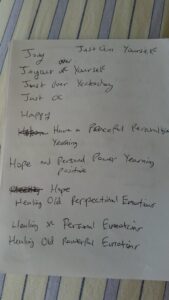 Just Our Yourself
Joy over
Joyous of Yourself
Just Over Yesterday
Just OC
Happy
Have a Peaceful Personalities
Yearning
Hope and Personal Power Yearning
Positive
Hope
Healing Old Perspectional Emotions
Healing Personal Emotions
Healing Old Powerful Emotions